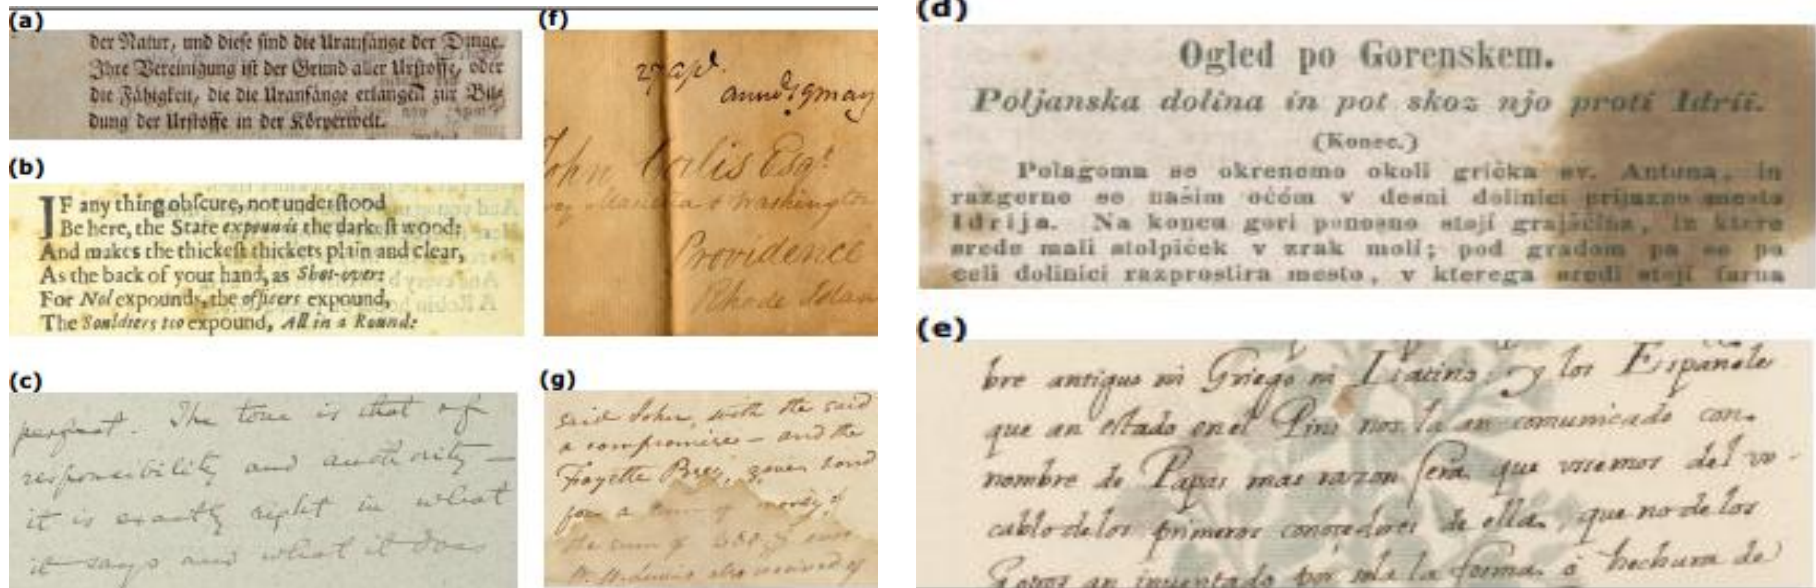 (a)
der Natur, und diese sind die Uranfänge der Dinge.
Ihre Vereinigung ist der Grund aller Urstoffe, oder
die Fähigkeit, die die Uranfänge erlangen zur Bil-
dung der Urstoffe in der Körperwelt.
(b)
IF any thing obſcure, not underſtood
Be here, the State expounds the darkeſt wood:
And makes the thickeſt thickets plain and clear,
As the back of your hand, as Shot-over:
For Nol expounds, the officers expound,
The Souldiers too expound, All in a Round:
(c)
The tone is that of
responsibility and authority –
it is exactly right in what
it says and what it does
(f)
27 apl.
19 may
John Esqr
Washington
Providence
Rhode Islan
(g)
said John, with the said
a compromise – and the
Fayette given bond
for a sum of
the sum of
(d)
Ogled po Gorenskem.
Poljanska dolina in pot skoz njo proti Idrii.
(Konec.)
Polagoma se okrenemo okoli grička sv. Antona, in
razgerne se našim očém v desni dolinici prijazno mesto
Idrija. Na koncu gori ponosno stoji grajščina, iz ktere
srede mali stolpiček v zrak moli; pod gradom pa se po
celi dolinici razprostira mesto, v kterega sredi stoji farna
(e)
bre antiguo ni Griego ni Latino, y los Españole
que an estado en el Piru nos la an comunicado con
nombre de Papas mas razon sera que usemos del vo-
cablo de los primeros conosedores de ella, que no de los
an inventado por sola la forma o hechura de